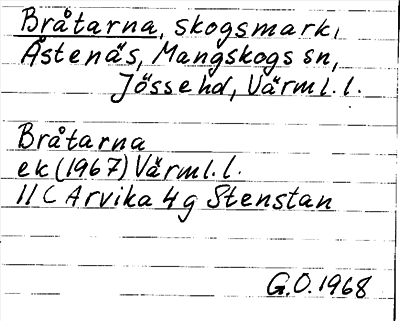 Bråtarna, skogsmark,
Åstenäs, Mangskogs sn,
Jösse hd, Värml. l.
Bråtarna
ek (1967) Värml. l.
11 C Arvika 4 g Stenstan
G.O. 1968